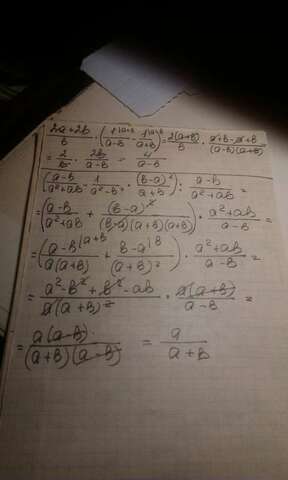 (2a+2b)/b · (1^{a+b}/(a-b) - 1^{a-b}/(a+b)) = 2(a+b)/b · (a+b-a+b)/((a-b)(a+b))
= 2/b · 2b/(a-b) = 4/(a-b)
((a-b)/(a²+ab) - 1/(a²-b²) · (b-a)²/(a+b)) : (a-b)/(a²+ab) =
= ((a-b)/(a²+ab) + (b-a)²/((b-a)(a+b)(a+b))) · (a²+ab)/(a-b) =
= ((a-b)^{a+b}/(a(a+b)) + (b-a)/(a+b)²) · (a²+ab)/(a-b) =
= (a²-b²+b²-ab)/(a(a+b)²) · a(a+b)/(a-b) =
= a(a-b)/((a+b)(a-b)) = a/(a+b)